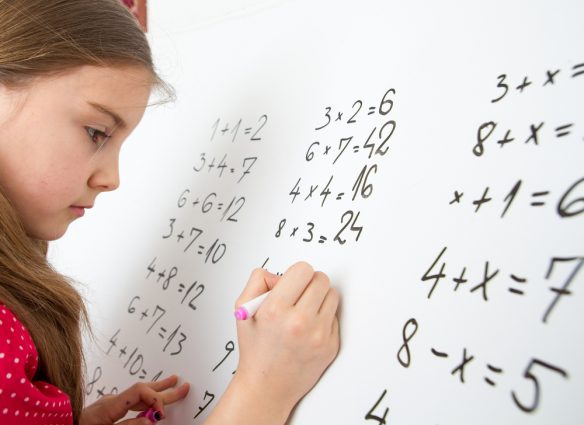 1+1=2
3+4=7
6+6=12
3+7=10
4+8=12
6+7=13
4+10=1
8+
3×2=6
6×7=42
4×4=16
8×3=24
4
9
7
3+x=
8+x=
x+1=6
4+x=7
8-x=5
4